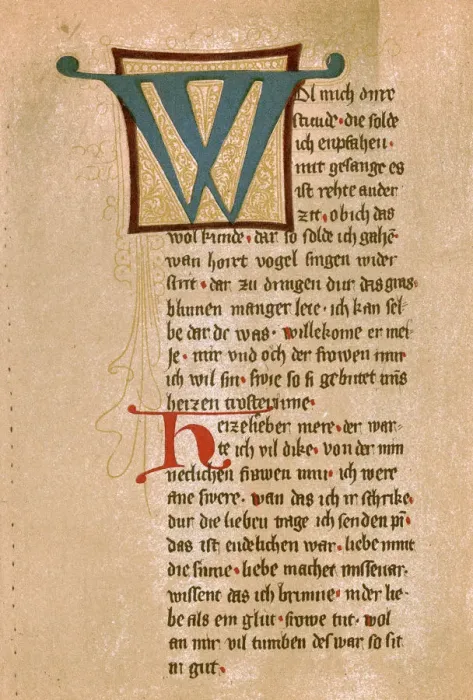 Wol mich dirre
stunde · die solde
ich enpfahen ·
mit gesange es
ist rehte ander
zit · ob ich das
wol kunde · dar so solde ich gahē
wan hoirt vogel singen wider
strit · dar zu dringen dur das gras ·
blumen manger leie · ich kan sel-
be dar de was · willekome er mei
ie · mir vnd och der frowen min
ich wil sin · swie so si gebutet mīs
herzen trosterinne ·
herzelieber mere · der war-
te ich vil dike · von der min
neclichen frowen min · ich were
ane swere · wan das ich ir schrike
dur die lieben trage ich senden pī ·
das ist endelichen war · liebe mnt
die sinne · liebe machet missevar ·
wissent das ich brinne · in der lie-
be als ein glut · frowe tut · wol
an mir vil tumben des war so sit
ir gut ·